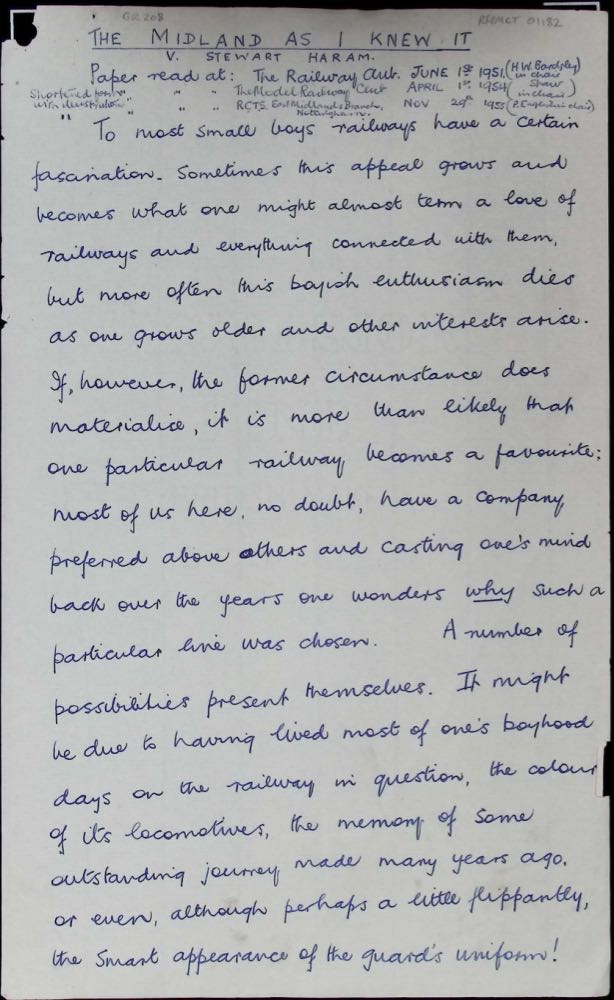 GR 208
RFMCT 01182
THE MIDLAND AS I KNEW IT
V. STEWART HARAM.
Paper read at: The Railway Club. JUNE 1st 1951. (H.W. Bardsley in chair
Shortened form " " " The Model Railway Club APRIL 1st 1954 ( Shaw in chair)
with illustrations " " " R.C.T.S. East Midlands Branch, Nottingham. NOV 29th 1955 (P. in chair)
To most small boys railways have a certain
fascination. Sometimes this appeal grows and
becomes what one might almost term a love of
railways and everything connected with them,
but more often this boyish enthusiasm dies
as one grows older and other interests arise.
If, however, the former circumstance does
materialise, it is more than likely that
one particular railway becomes a favourite;
most of us here, no doubt, have a company
preferred above others and casting one's mind
back over the years one wonders why such a
particular line was chosen. A number of
possibilities present themselves. It might
be due to having lived most of one's boyhood
days on the railway in question, the colour
of its locomotives, the memory of some
outstanding journey made many years ago,
or even, although perhaps a little flippantly,
the smart appearance of the guard's uniform!